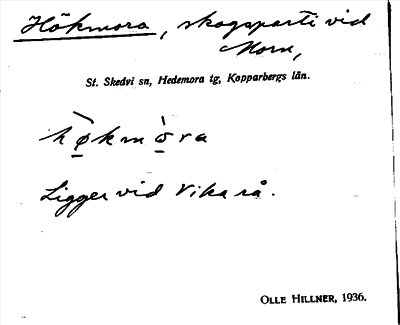 Hökmora, skogsparti vid
Morn,
St. Skedvi sn, Hedemora tg, Kopparbergs län.
hø̀kmòra
Ligger vid Vika rå.
OLLE HILLNER, 1936.